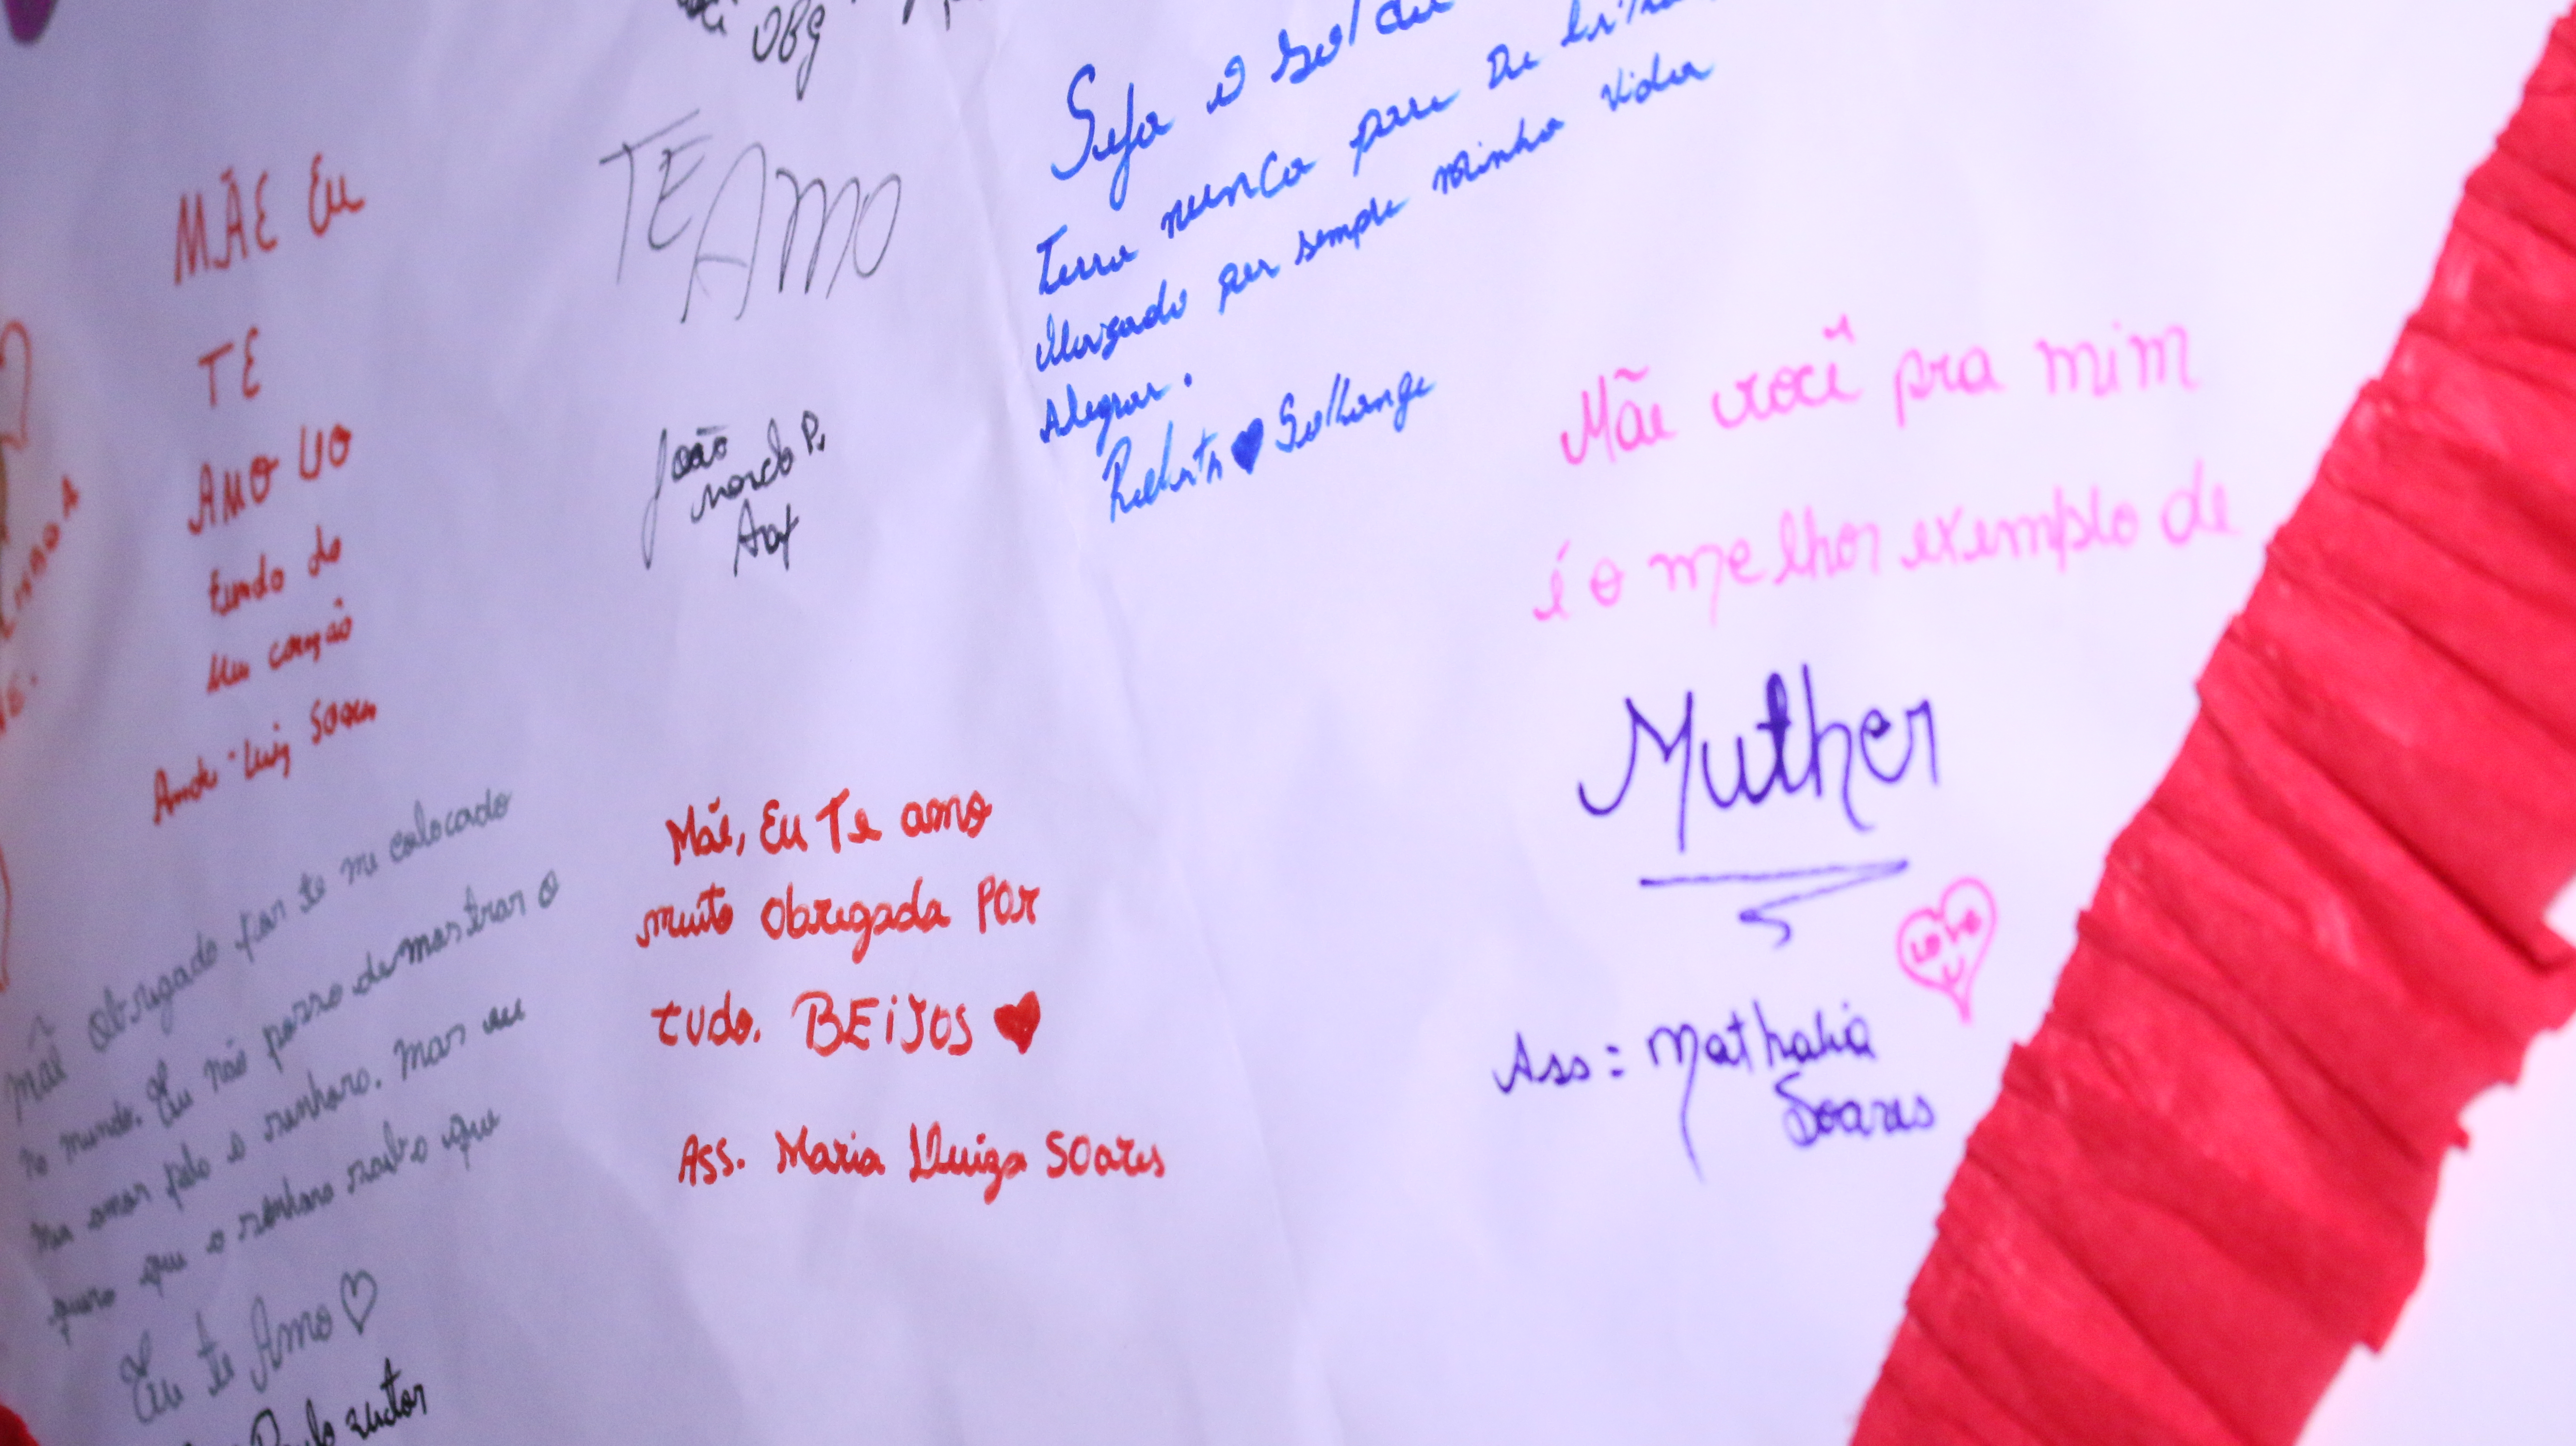 OBg
MÃE Eu
TE
AMO UO
fundo do
Meu coração
Luiz Soares
TE
AMO
João
P.
Seja o Sol da
Terra nunca pare De
por sempre minha vida
Alegrar.
Roberta ♥ Sollange
Mãe você pra mim
é o melhor exemplo de
Muther
LOVE
U
Ass: Nathalia
Soares
Mãe, Eu Te amo
muito obrigada POR
tudo. BEIJOS ♥
Ass. Maria Lluiza Soares
mãe obrigado por te me colocado
no mundo. Eu não posso demostrar o
meu amor pelo a senhora. Mas eu
quero que a senhora saiba que
Eu te Amo ♡
Paulo